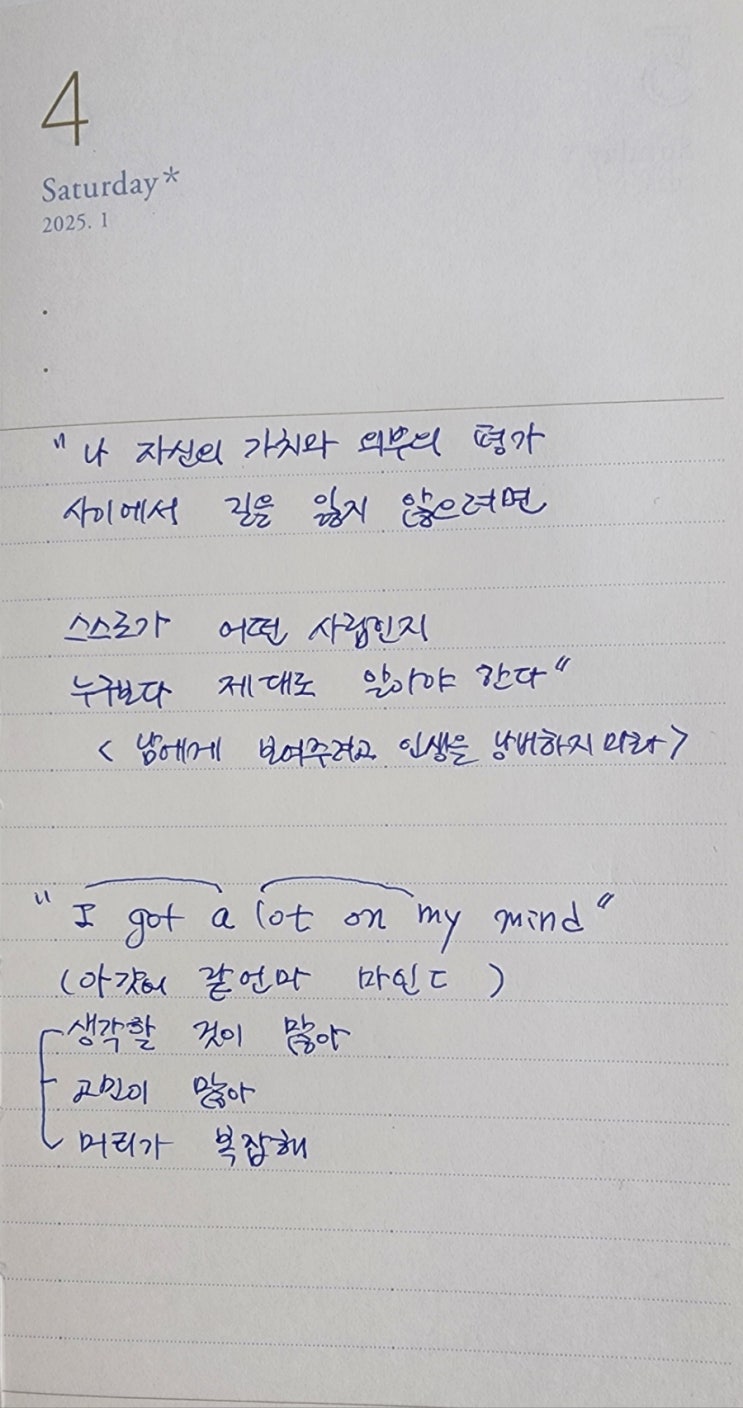 4
Saturday*
2025. 1
"나 자신의 가치와 외부의 평가
사이에서 길을 잃지 않으려면
스스로가 어떤 사람인지
누구보다 제대로 알아야 한다"
<남에게 보여주려고 인생을 낭비하지 마라>
"I got a lot on my mind"
(아갓어 언마 마인드)
생각할 것이 많아
고민이 많아
머리가 복잡해